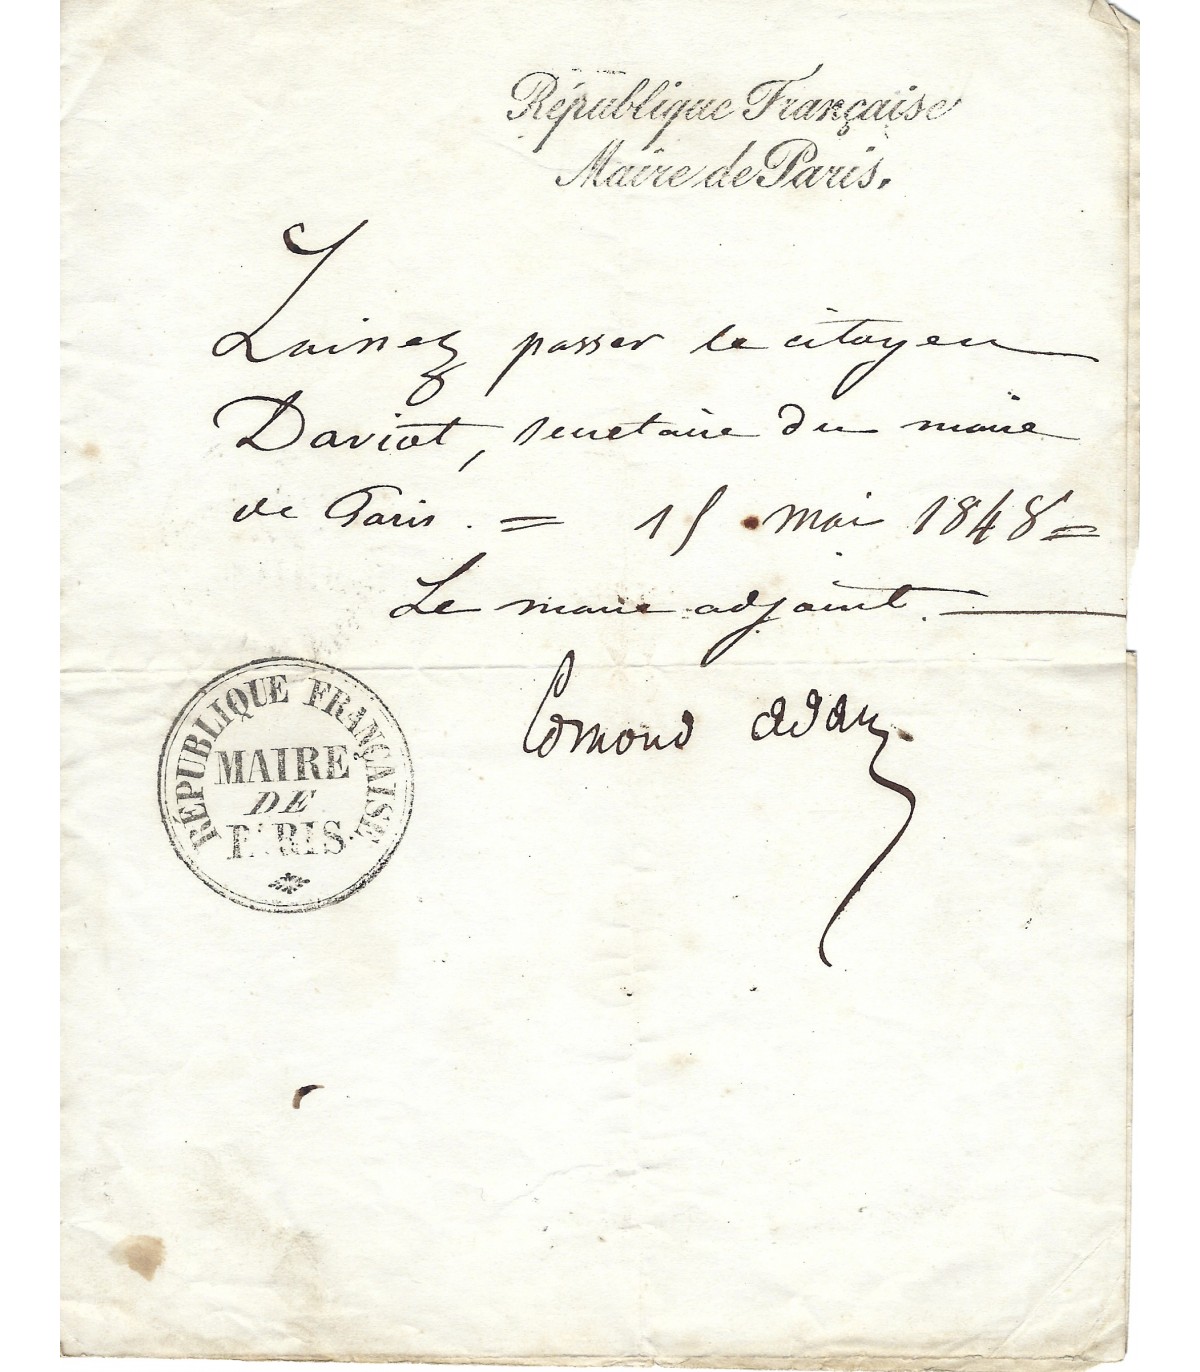 République Française
Maire de Paris.
Laissez passer le citoyen
Daviot, secretaire du maire
de Paris. = 15 mai 1848 =
Le maire adjoint.
Edmond Adam
RÉPUBLIQUE FRANÇAISE
MAIRE
DE
PARIS.